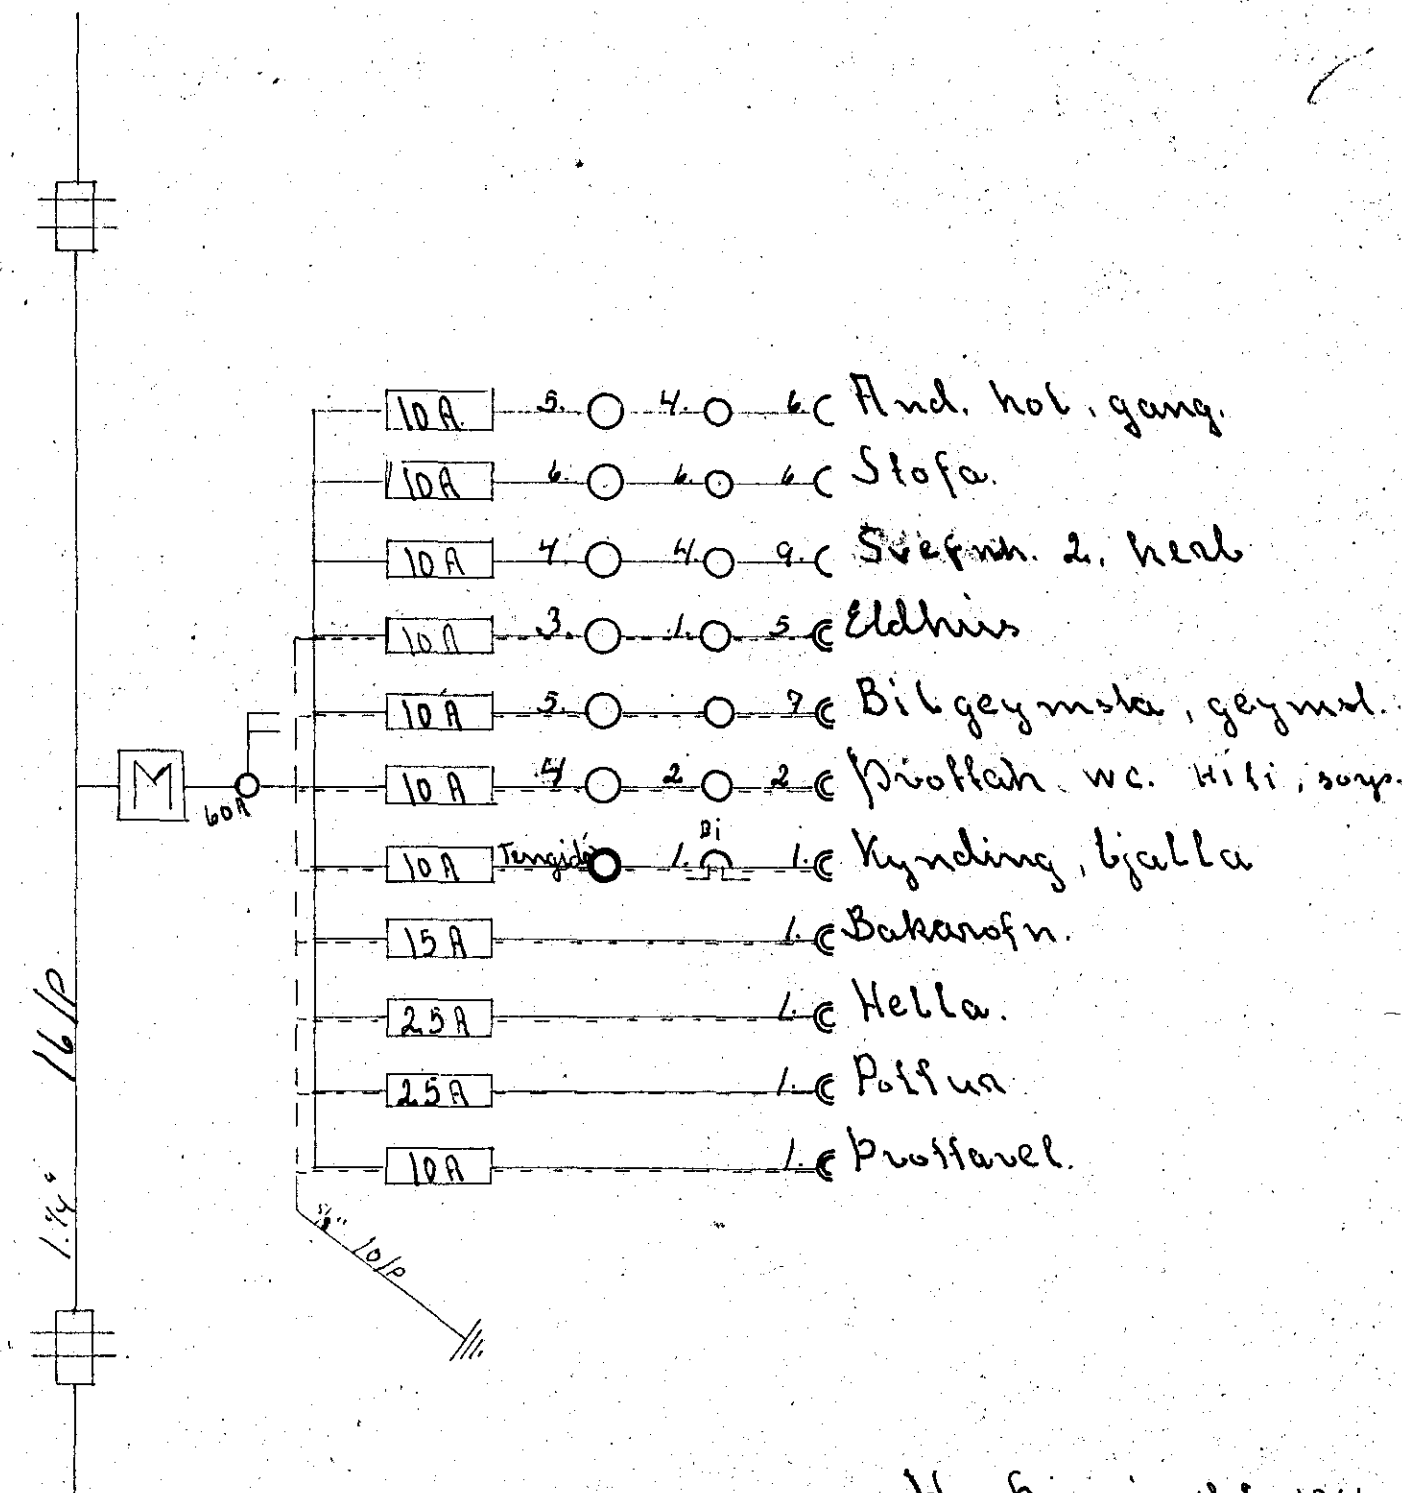 10 A. 5. 4. 6. And. hol, gang.
10 A 6. 6. 6 Stofa.
10 A 4. 4. 9. Svefnh. 2, herb
10 A 3. 1. 5 Eldhús
10 A 5. 7 Bílgeymsla, geymsl.
10 A 4 2 2 Þvottah. WC. Hiti, sorp.
60A
M
Bi
10 A Tengidó 1. 1. Kynding, bjalla
15 A 1. Bakarofn.
25 A 1. Hella.
25 A 1. Pottur
10 A 1. Þvottavel.
1.1/4" 16/P
5/8" 10/P